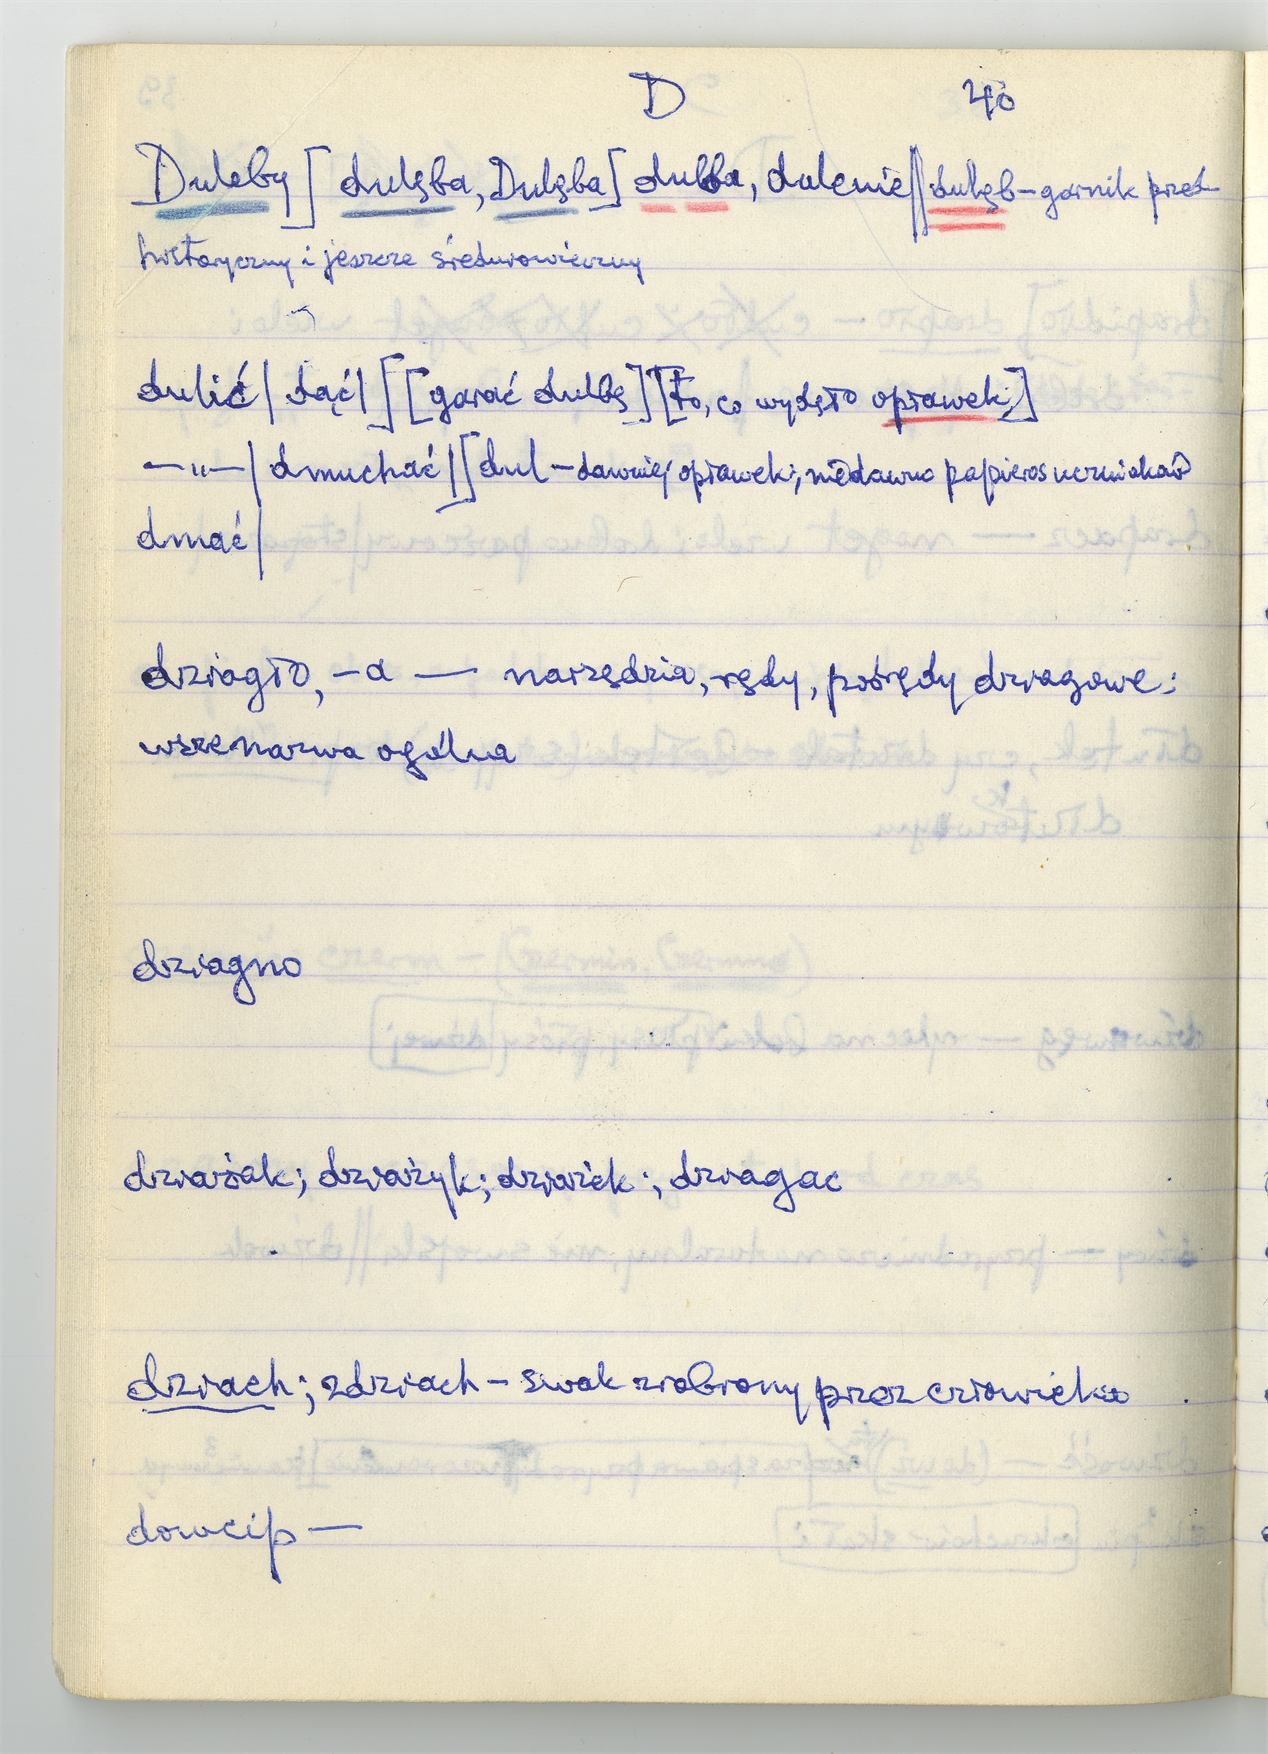 D 40
Duleby] dulęba, Dulęba] dulba, dulenie || dulęb – garnik przed-
historyczny i jeszcze średniowieczny
dulić | dąć | ] [garać dulbę] [to, co wydęto opławek;]
—„— | dmuchać | ] [dul – dawniej opławek; niedawno papieros uczniaków
dmać |
dziagło, -a — narzędzia, rędy, porędy dziagowe;
wsze nazwa ogólna
dziagno
dziażak; dziażyk; dziażek; dziagac
dziach; zdziach – swak zrobiony przez człowieka
dowcip —